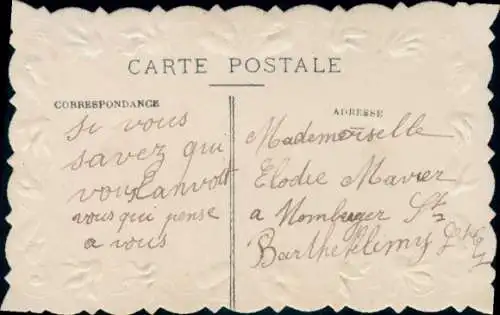 CARTE POSTALE
CORRESPONDANCE
si vous
savez qui
vous qui pense
a vous
ADRESSE
Mademoiselle
Elodie Mavier
a Momburger St
Barthelklimy